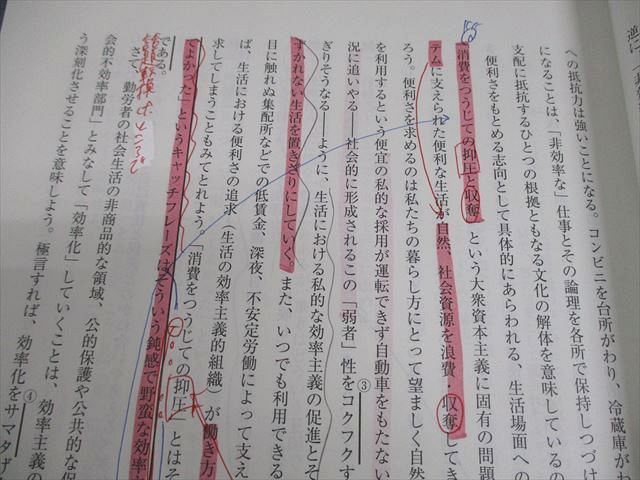 逆に
への抵抗力は強いことになる。コンビニを台所がわり、冷蔵庫がわ
になることは、「非効率な」仕事とその論理を各所で保持しつづけ
支配に抵抗するひとつの根拠ともなる文化の解体を意味しているの
便利さをもとめる志向として具体的にあらわれる、生活場面への
「消費をつうじての抑圧と収奪」という大衆資本主義に固有の問題
テムに支えられた便利な生活が自然、社会資源を浪費・収奪してき
ろう。便利さを求めるのは私たちの暮らし方にとって望ましく自然
を利用するという便宜の私的な採用が運転できず自動車をもたない
況に追いやる――社会的に形成されるこの「弱者」性を③コクフクす
ぎりそうなる――ように、生活における私的な効率主義の促進とそ
すかれない生活を置きざりにしていく。また、いつでも利用できる
目に触れぬ集配所などでの低賃金、深夜、不安定労働によって支え
ば、生活における便利さの追求（生活の効率主義的組織）が働き方
求してしまうこともみてとれよう。「消費をつうじての抑圧」とはそ
てよかった」というキャッチフレーズはそういう鈍感で野蛮な効率
である。
さて、勤労者の社会生活の非商品的な領域、公的保護や公共的な保
会的不効率部門」とみなして「効率化」していくことは、効率主義の
う深刻化させることを意味しよう。極言すれば、効率化を④サマタげ